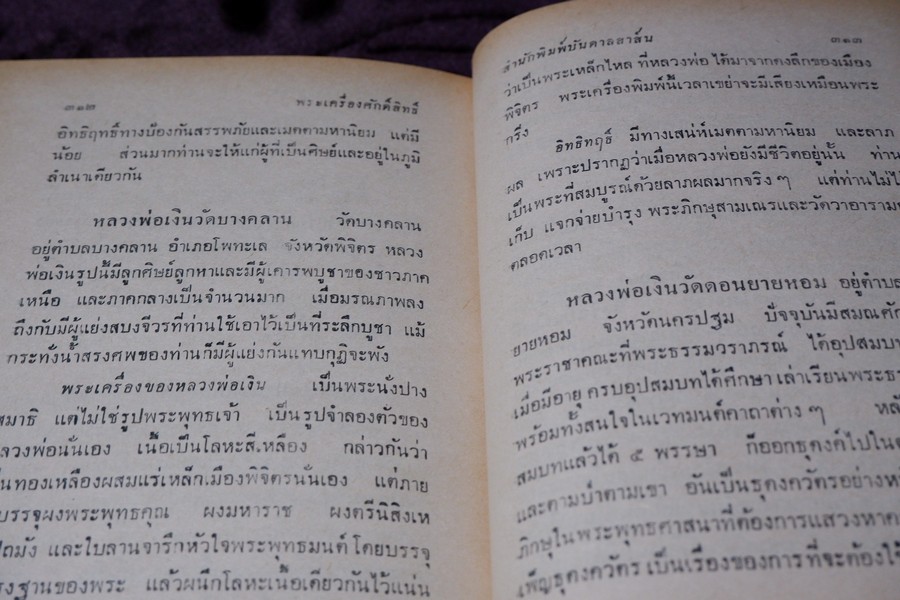 ๓๑๒ พระเครื่องศักดิ์สิทธิ์
อิทธิฤทธิ์ทางป้องกันสรรพภัยและเมตตามหานิยม แต่มี
น้อย ส่วนมากท่านจะให้แก่ผู้ที่เป็นศิษย์และอยู่ในภูมิ
ลำเนาเดียวกัน
หลวงพ่อเงินวัดบางคลาน วัดบางคลาน
อยู่ตำบลบางคลาน อำเภอโพทะเล จังหวัดพิจิตร หลวง
พ่อเงินรูปนี้มีลูกศิษย์ลูกหาและมีผู้เคารพบูชาของชาวภาค
เหนือ และภาคกลางเป็นจำนวนมาก เมื่อมรณภาพลง
ถึงกับมีผู้แย่งสบงจีวรที่ท่านใช้เอาไว้เป็นที่ระลึกบูชา แม้
กระทั่งน้ำสรงศพของท่านก็มีผู้แย่งกันแทบกุฏิจะพัง
พระเครื่องของหลวงพ่อเงิน เป็นพระนั่งปาง
สมาธิ แต่ไม่ใช่รูปพระพุทธเจ้า เป็นรูปจำลองตัวของ
ลวงพ่อนั่นเอง เนื้อเป็นโลหะสีเหลือง กล่าวกันว่า
นทองเหลืองผสมแร่เหล็กเมืองพิจิตรนั่นเอง แต่ภาย
บรรจุผงพระพุทธคุณ ผงมหาราช ผงตรีนิสิงเห
ถมัง และใบลานจารึกหัวใจพระพุทธมนต์ โดยบรรจุ
รงฐานของพระ แล้วผนึกโลหะเนื้อเดียวกันไว้แน่น
สำนักพิมพ์บันดาลสาส์น ๓๑๓
ว่าเป็นพระเหล็กไหล ที่หลวงพ่อ ได้มาจากดงลึกของเมือง
พิจิตร พระเครื่องพิมพ์นี้เวลาเขย่าจะมีเสียงเหมือนพระ
กริ่ง
อิทธิฤทธิ์ มีทางเสน่ห์เมตตามหานิยม และลาภ
ผล เพราะปรากฏว่าเมื่อหลวงพ่อยังมีชีวิตอยู่นั้น ท่าน
เป็นพระที่สมบูรณ์ด้วยลาภผลมากจริง ๆ แต่ท่านไม่ได้
เก็บ แจกจ่ายบำรุง พระภิกษุสามเณรและวัดวาอาราม
ตลอดเวลา
หลวงพ่อเงินวัดดอนยายหอม อยู่ตำบล
ยายหอม จังหวัดนครปฐม ปัจจุบันมีสมณศัก
พระราชาคณะที่พระธรรมวราภรณ์ ได้อุปสมบท
เมื่อมีอายุ ครบอุปสมบทได้ศึกษา เล่าเรียนพระธร
พร้อมทั้งสนใจในเวทมนต์คาถาต่าง ๆ หลั
สมบทแล้วได้ ๕ พรรษา ก็ออกธุดงค์ไปใน
และตามป่าตามเขา อันเป็นธุดงควัตรอย่างห
ภิกษุในพระพุทธศาสนาที่ต้องการแสวงหา
เพ็ญธุดงควัตร เป็นเรื่องของการที่จะต้องใช้